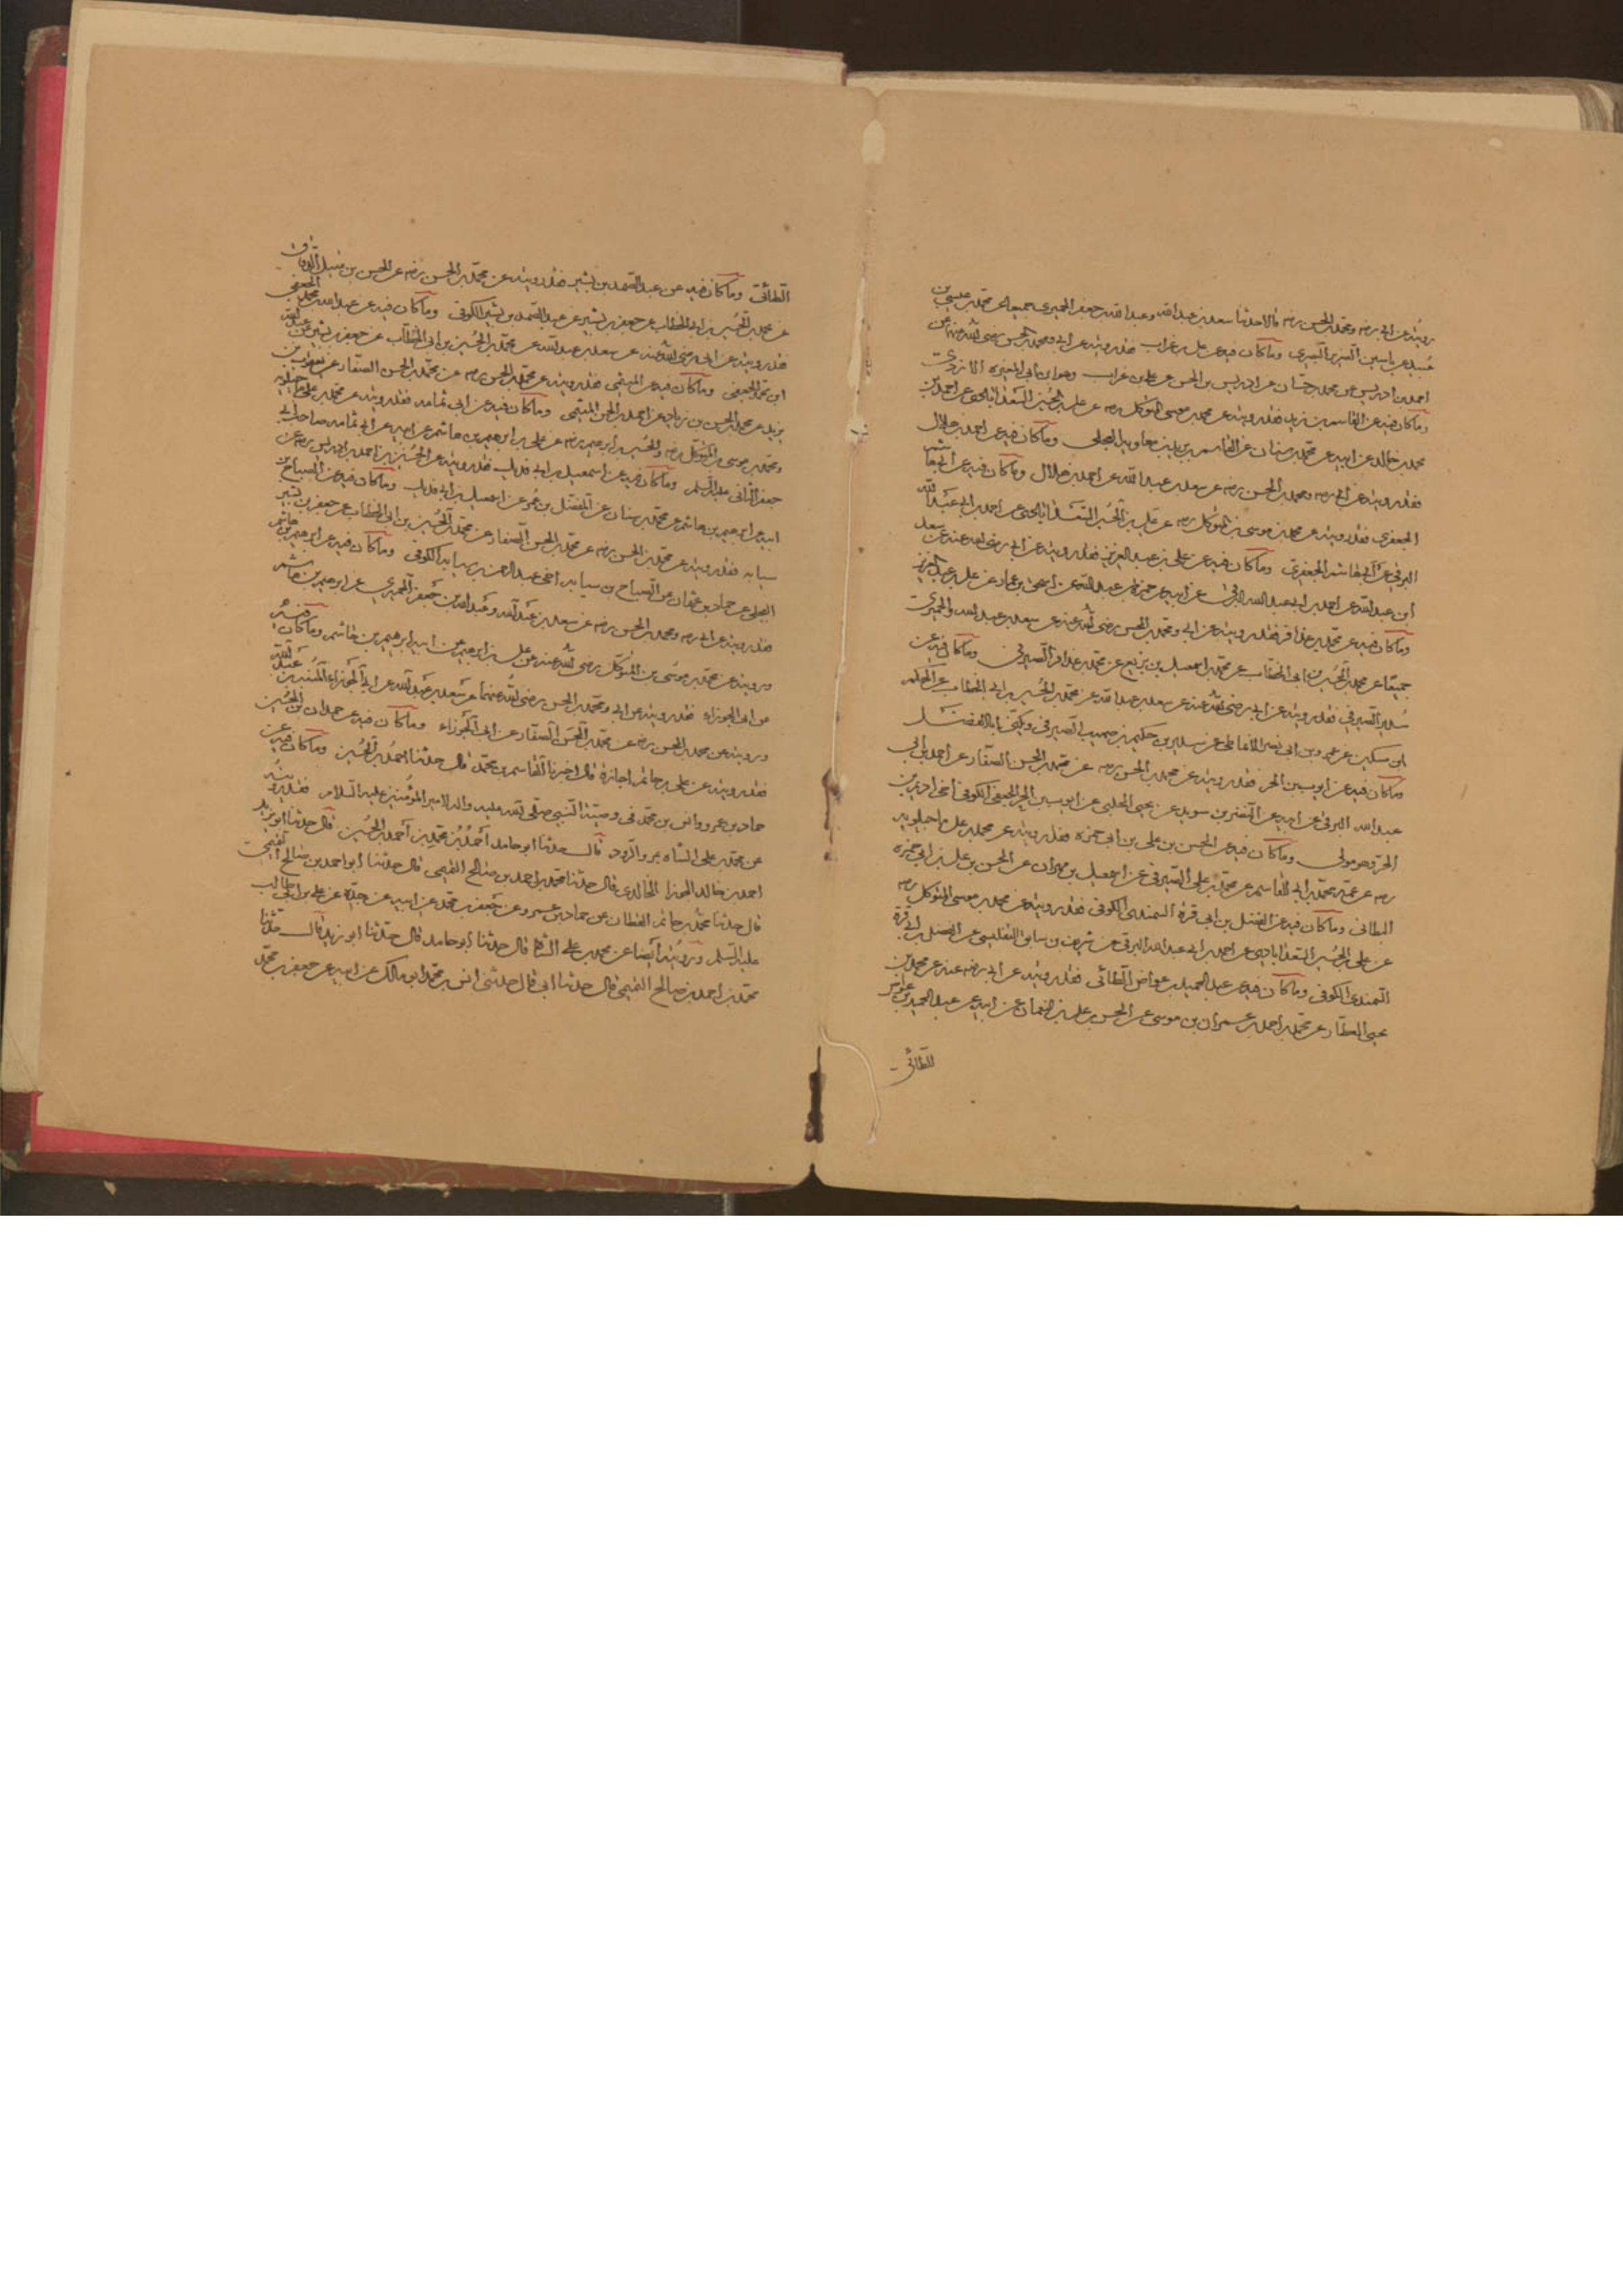 رويته عن ابي رضه ومحمد بن الحسن رضه قالا حدثنا سعد بن عبدالله وعبدالله بن جعفر الحميري جميعا عن محمد بن عيسى بن
عبيد عن ياسين الضرير البصري وما كان فيه عن علي بن غراب فقد رويته عن ابي ومحمد بن الحسن رضي الله عنهما عن
احمد بن ادريس عن محمد بن حسان عن ادريس بن الحسن عن علي بن غراب وهو ابن ابي المغيرة الازدي
وما كان فيه عن القاسم بن بريد فقد رويته عن محمد بن موسى المتوكل رحمه عن علي بن الحسين السعدابادي عن احمد بن
محمد بن خالد عن ابيه عن محمد بن سنان عن القاسم بن بريد بن معاوية العجلي وما كان فيه عن احمد بن هلال
فقد رويته عن ابي رحمه ومحمد بن الحسن رضه عن سعد بن عبدالله عن احمد بن هلال وما كان فيه عن ابي هاشم
الجعفري فقد رويته عن محمد بن موسى بن المتوكل رحمه عن علي بن الحسين السعدابادي عن احمد بن ابي عبدالله
البرقي عن ابي هاشم الجعفري وما كان فيه عن علي بن عبد العزيز فقد رويته عن ابي رضي الله عنه عن سعد
ابن عبدالله عن احمد بن ابي عبدالله البرقي عن ابيه عن حمزة بن عبدالله عن اسحق بن عمار عن علي بن عبد العزيز
وما كان فيه عن محمد بن عذافر فقد رويته عن ابي ومحمد بن الحسن رضي الله عنه عن سعد بن عبدالله والحميري
جميعا عن محمد بن الحسين بن ابي الخطاب عن محمد بن اسمعيل بن بزيع عن محمد بن عذافر الصيرفي وما كان فيه عن
سدير الصيرفي فقد رويته عن ابي رضي الله عنه عن سعد بن عبدالله عن محمد بن الحسين بن ابي الخطاب عن الحكم
ابن مسكين عن عمرو بن ابي نصر الانماطي عن سدير بن حكيم بن صهيب الصيرفي ويكنى بابا الفضل
وما كان فيه عن ايوب بن الحر فقد رويته عن محمد بن الحسن رحمه عن محمد بن الحسن الصفار عن احمد بن ابي
عبدالله البرقي عن ابيه عن النضر بن سويد عن يحيى الحلبي عن ايوب بن الحر الجعفي الكوفي اخي اديم بن
الحر وهو مولى وما كان فيه عن الحسن بن علي بن ابي حمزة فقد رويته عن محمد بن علي ماجيلويه
رحمه عن عمه محمد بن ابي القاسم عن محمد بن علي الصيرفي عن اسمعيل بن مهران عن الحسن بن علي بن ابي حمزة
البطائني وما كان فيه عن الفضل بن ابي قرة السمندي الكوفي فقد رويته عن محمد بن موسى المتوكل رحمه
عن علي بن الحسين السعدابادي عن احمد بن ابي عبدالله البرقي عن شريف بن سابق التفليسي عن الفضل بن ابي قرة
السمندي الكوفي وما كان فيه عن عبد الحميد بن عواض الطائي فقد رويته عن ابي رضه عنه عن محمد بن
يحيى العطار عن محمد بن احمد عن عمران بن موسى عن الحسن بن علي بن النعمان عن ابيه عن عبد الحميد بن عواض
الطائي
الطائي وما كان فيه عن عبد الصمد بن بشير فقد رويته عن محمد بن الحسن رضه عن الحسن بن متيل الدقاق
عن محمد بن الحسين بن ابي الخطاب عن جعفر بن بشير عن عبد الصمد بن بشير الكوفي وما كان فيه عن عبدالله بن محمد الجعفي
فقد رويته عن ابي رضي الله عنه عن سعد بن عبدالله عن محمد بن الحسين بن ابي الخطاب عن جعفر بن بشير عن عبدالله
ابن محمد الجعفي وما كان فيه عن الميثمي فقد رويته عن محمد بن الحسن رحمه عن محمد بن الحسن الصفار عن يعقوب بن
يزيد عن محمد بن الحسن بن زياد عن احمد بن الحسن الميثمي وما كان فيه عن ابي ثمامه فقد رويته عن محمد بن علي ماجيلويه
ومحمد بن موسى بن المتوكل رضه والحسين بن ابرهيم رضه عن علي بن ابرهيم بن هاشم عن ابيه عن ابي ثمامه صاحب ابي
جعفر الثاني عليه السلم وما كان فيه عن اسمعيل بن ابي فديك فقد رويته عن الحسين بن احمد بن ادريس رضه عن
ابيه عن ابرهيم بن هاشم عن محمد بن سنان عن المفضل بن عمر عن اسمعيل بن ابي فديك وما كان فيه عن الصباح بن
سيابه فقد رويته عن محمد بن الحسن رضه عن محمد بن الحسن الصفار عن محمد بن الحسين بن ابي الخطاب عن جعفر بن بشير
البجلي عن حماد بن عثمان عن الصباح بن سيابه اخي عبد الرحمن بن سيابه الكوفي وما كان فيه عن ابرهيم بن هاشم
فقد رويته عن ابي رحمه ومحمد بن الحسن رضه عن سعد بن عبدالله وعبدالله بن جعفر الحميري عن ابرهيم بن هاشم
ورويته عن محمد بن موسى بن المتوكل رضي الله عنه عن علي بن ابرهيم عن ابيه ابرهيم بن هاشم وما كان فيه
عن ابي الجوزاء فقد رويته عن ابي ومحمد بن الحسن رضي الله عنهما عن سعد بن عبدالله عن ابي الجوزاء المنبه بن عبدالله
ورويته عن محمد بن الحسن رضه عن محمد بن الحسن الصفار عن ابي الجوزاء وما كان فيه عن حمدان بن الحسين
فقد رويته عن علي بن حاتم اجازة قال اخبرنا القاسم بن محمد قال حدثنا حمدان بن الحسين وما كان فيه عن
حماد بن عمرو وانس بن محمد في وصية النبي صلى الله عليه واله لامير المؤمنين عليه السلام فقد رويته
عن محمد بن علي الشاه بمرو الرود قال حدثنا ابو حامد احمد بن محمد بن احمد بن الحسين قال حدثنا ابو يزيد
احمد بن خالد الخالدي قال حدثنا محمد بن احمد بن صالح التميمي قال حدثنا ابو احمد بن صالح التميمي
قال حدثنا محمد بن حاتم القطان عن حماد بن عمرو عن جعفر بن محمد عن ابيه عن جده عن علي بن ابي طالب
عليه السلم ورويته ايضا عن محمد بن علي الشاه قال حدثنا ابو حامد قال حدثنا ابو يزيد قال حدثنا
محمد بن احمد بن صالح التميمي قال حدثنا ابي قال حدثني انس بن محمد ابو مالك عن ابيه عن جعفر بن محمد